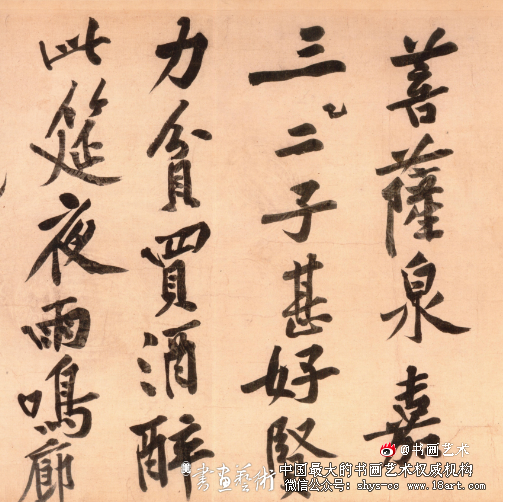 菩薩泉嘉
三二子甚好賢
力貧買酒醉
此筵夜雨鳴廊
@书画艺术
書画藝術
中国最大的书画艺术权威机构
微信公众号：shys-cc www.18art.com